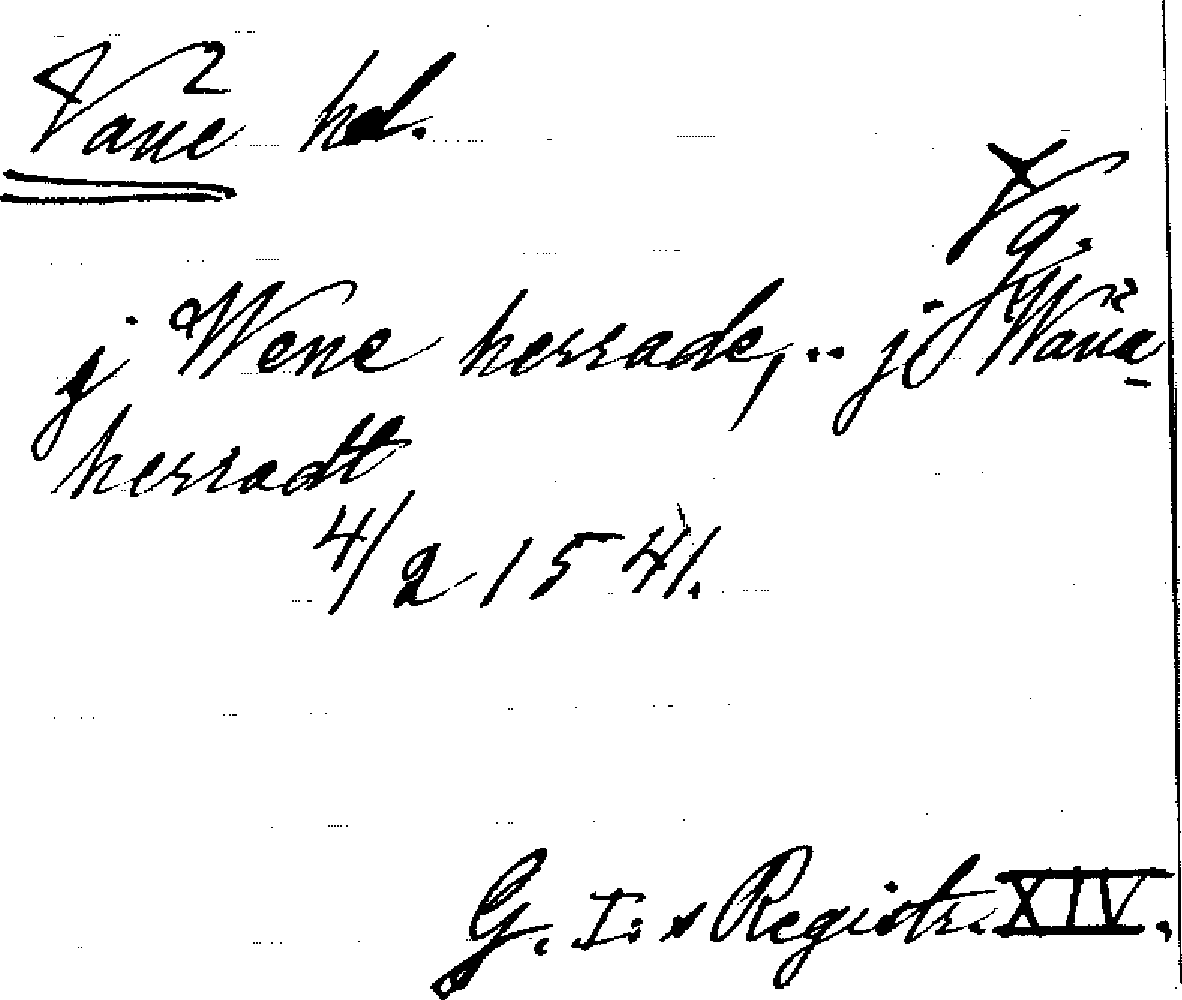 Väne hd.
Vg.
j Wene herrade, .. j Wäna
herradt
4/2 1541.
G. I:s Registr. XIV.